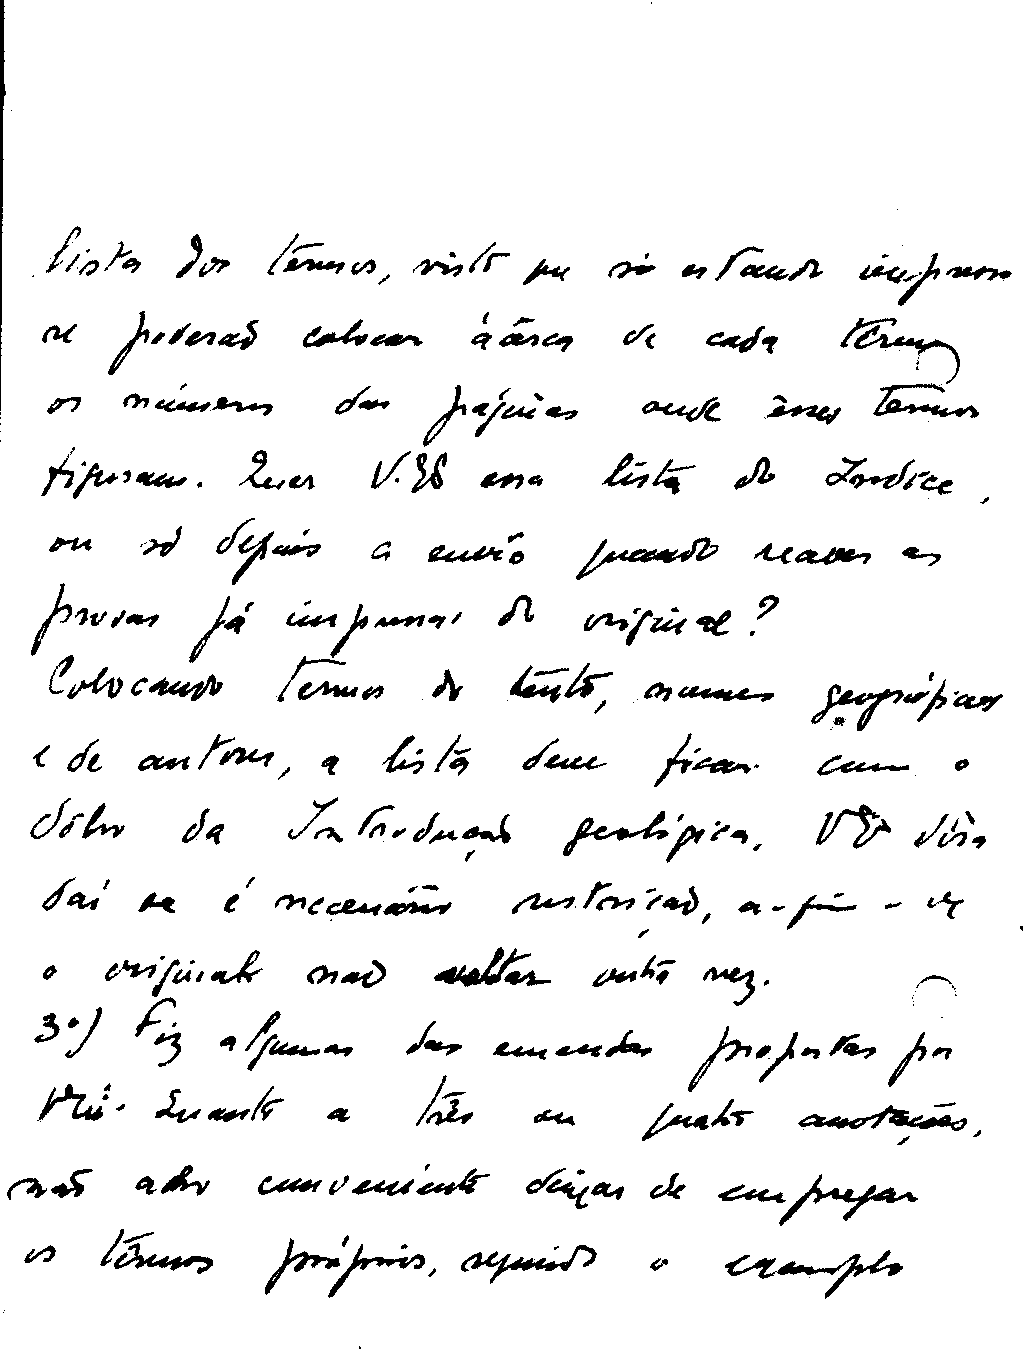 lista dos têrmos, visto que só estando impresso
se poderão colocar à área de cada têrmo
os números das páginas onde êsses têrmos
figuram. Quer V. essa lista do Indice,
ou só depois a envio quando reaver as
provas já impressas do original?
Colocando termos do texto, nomes geográficos
e de autores, a lista deve ficar com o
dôbro da Introdução geológica. V. dirá
daí se é necessário restrição, a-fim-de
o original não voltar outra vez.
3º) Fiz algumas das emendas propostas por
Quanto a três ou quatro anotações,
não acho conveniente deixar de empregar
os têrmos próprios, seguindo o exemplo